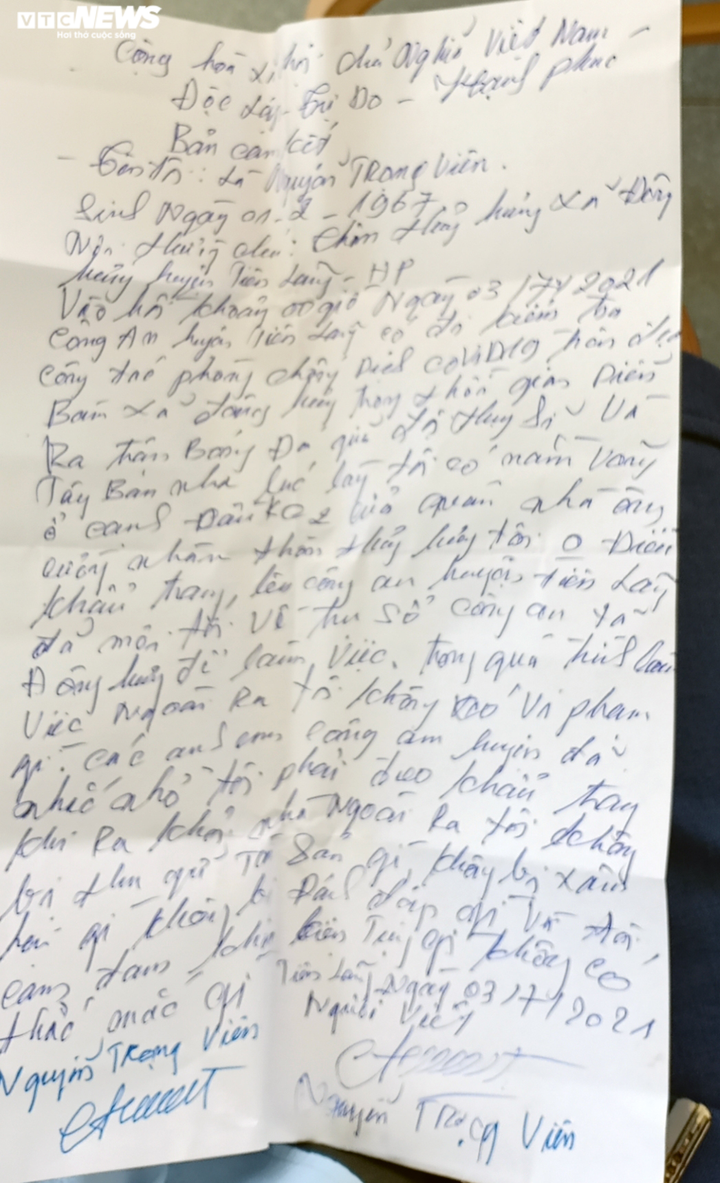 VTC NEWS
Hơi thở cuộc sống
Cộng hòa xã hội chủ Nghĩa Việt Nam
Độc Lập - Tự Do - Hạnh phúc
Bản cam kết
- Tên tôi: Là Nguyễn Trọng Viên.
Sinh Ngày 01-2-1967
Nơi thường chú: thôn thủy hưng xã Đông
hưng huyện Tiên Lãng - HP
Vào hồi khoảng 00 giờ Ngày 03/7/2021
Công An huyện Tiên Lãng có đi kiểm tra
công tác phòng chống Dich COVID19 trên địa
Bàn xã đông hưng trong thời gian Diễn
Ra trận Bóng Đá giữa đội thụy Sĩ Và
Tây Ban nha lúc tôi có nằm Võng
ở cạnh quán nhà ông
nhân thôn thủy hưng tôi o
khẩu trang, lên công an huyện Tiên Lãng
đã mời tôi Về trụ Sở công an xã
Đông hưng để làm Việc, trong quá trình làm
Việc Ngoài Ra tôi không có Vi phạm
gì. các anh em công an huyện đã
nhắc nhở tôi phải đeo khẩu trang
khi Ra khỏi nhà Ngoài Ra tôi không
bị thu giữ Tài Sản gì, không bị xâm
hại gì không bị Đánh đập gì Và tôi
cam đoan không có
thắc mắc gì Tiên Lãng Ngày 03/7/2021
Người Viết
Nguyễn Trọng Viên
Nguyễn Trọng Viên